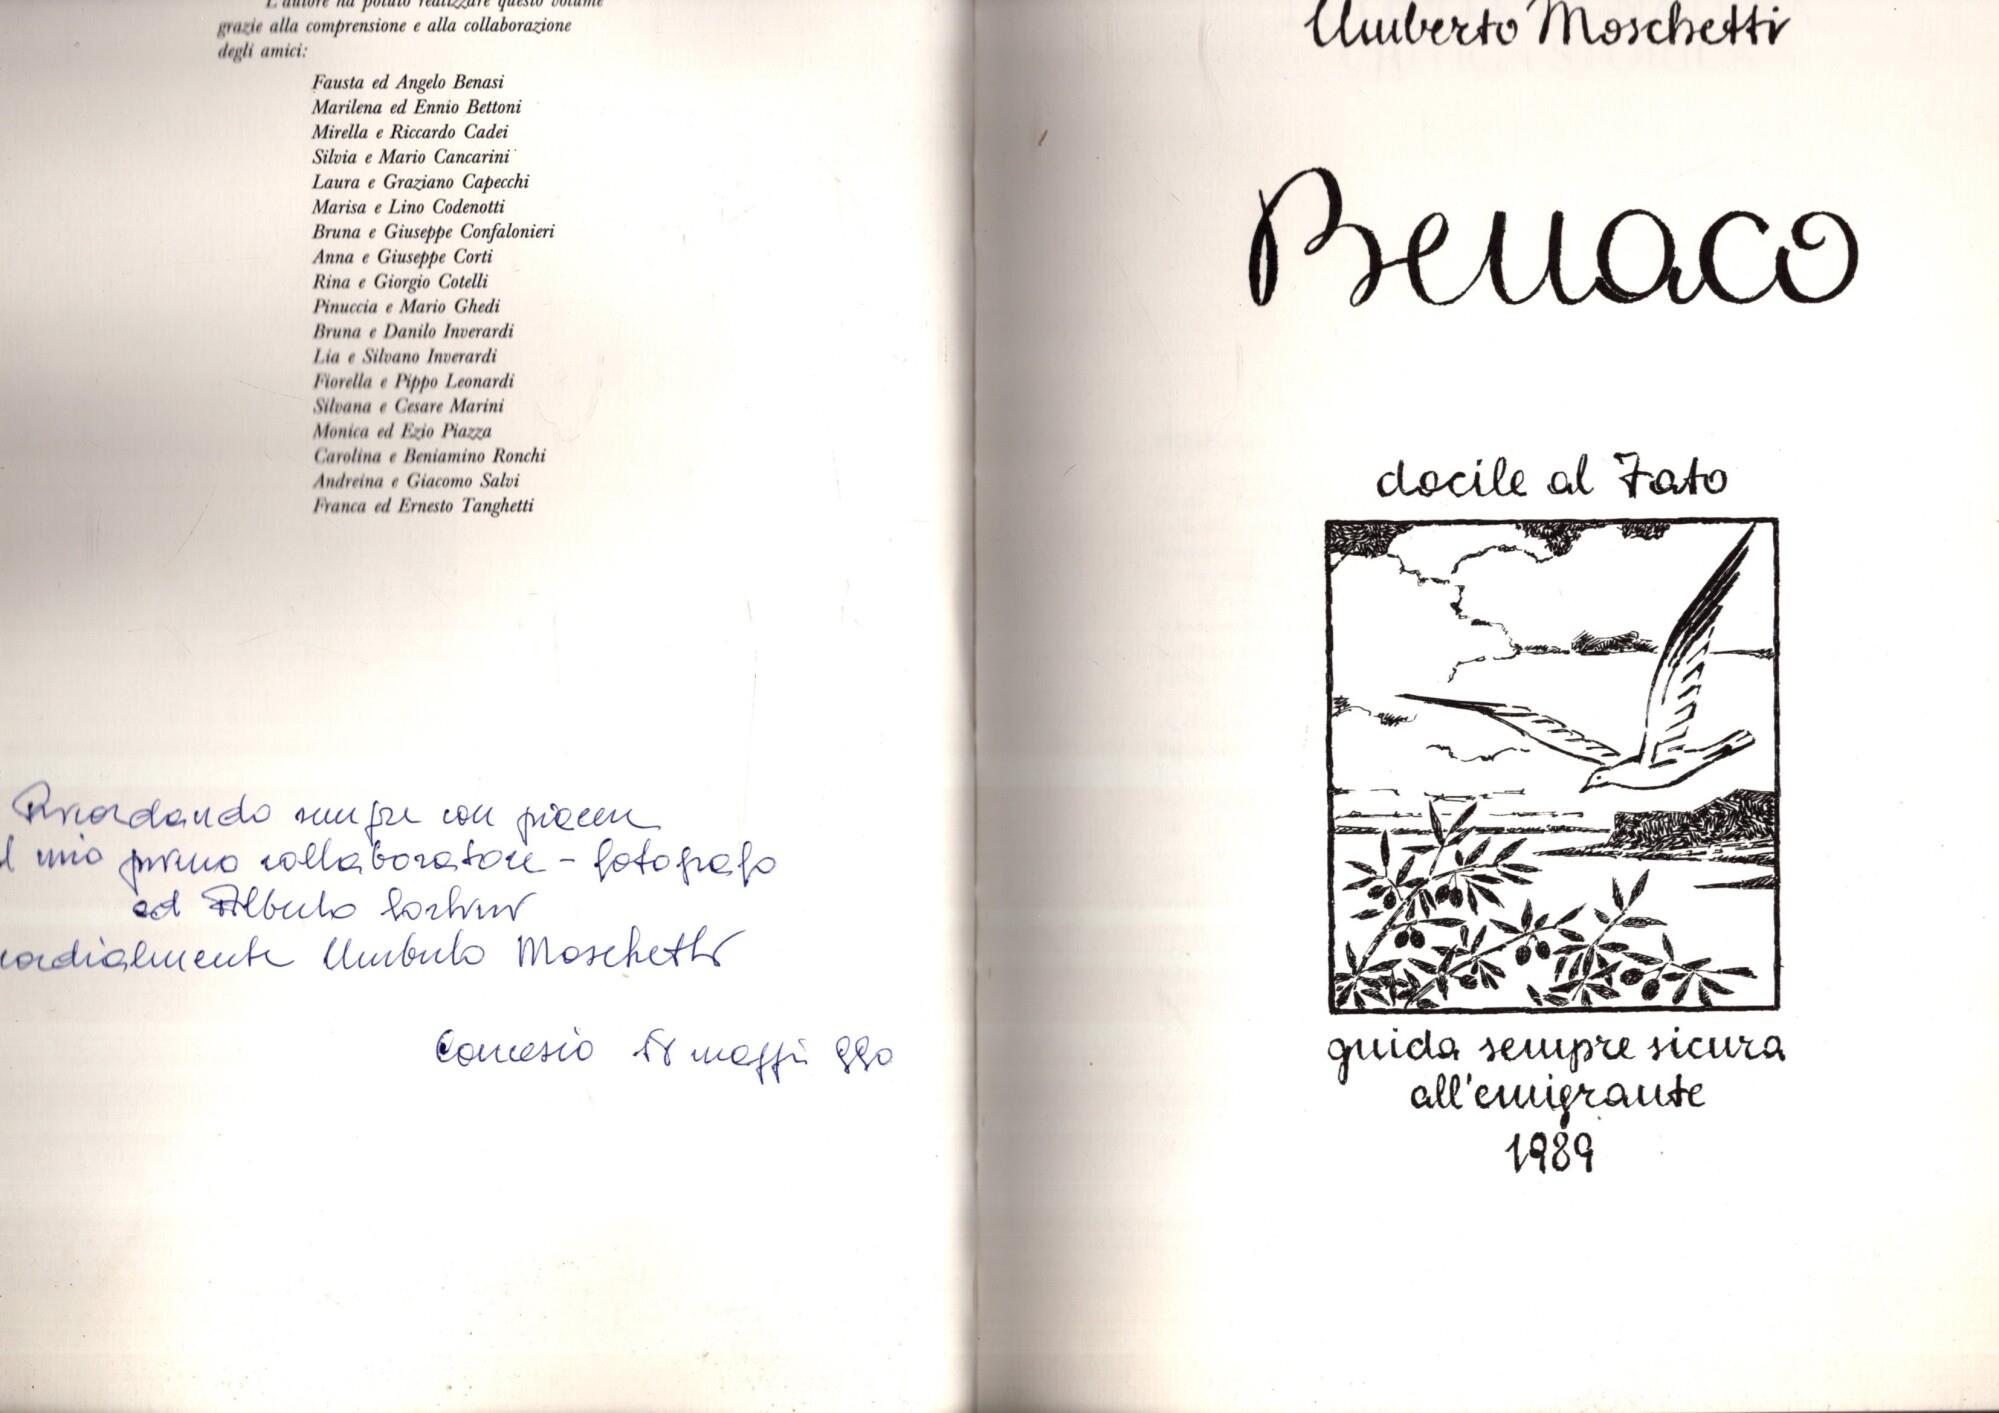 L'autore ha potuto realizzare questo volume
grazie alla comprensione e alla collaborazione
degli amici:
Fausta ed Angelo Benasi
Marilena ed Ennio Bettoni
Mirella e Riccardo Cadei
Silvia e Mario Cancarini
Laura e Graziano Capecchi
Marisa e Lino Codenotti
Bruna e Giuseppe Confalonieri
Anna e Giuseppe Corti
Rina e Giorgio Cotelli
Pinuccia e Mario Ghedi
Bruna e Danilo Inverardi
Lia e Silvano Inverardi
Fiorella e Pippo Leonardi
Silvana e Cesare Marini
Monica ed Ezio Piazza
Carolina e Beniamino Ronchi
Andreina e Giacomo Salvi
Franca ed Ernesto Tanghetti
Ricordando sempre con piacere
il mio primo collaboratore - fotografo
ad Alberto
cordialmente Umberto Moschetti
Concesio maggio 990
Umberto Moschetti
Benaco
docile al Fato
guida sempre sicura
all'emigrante
1989